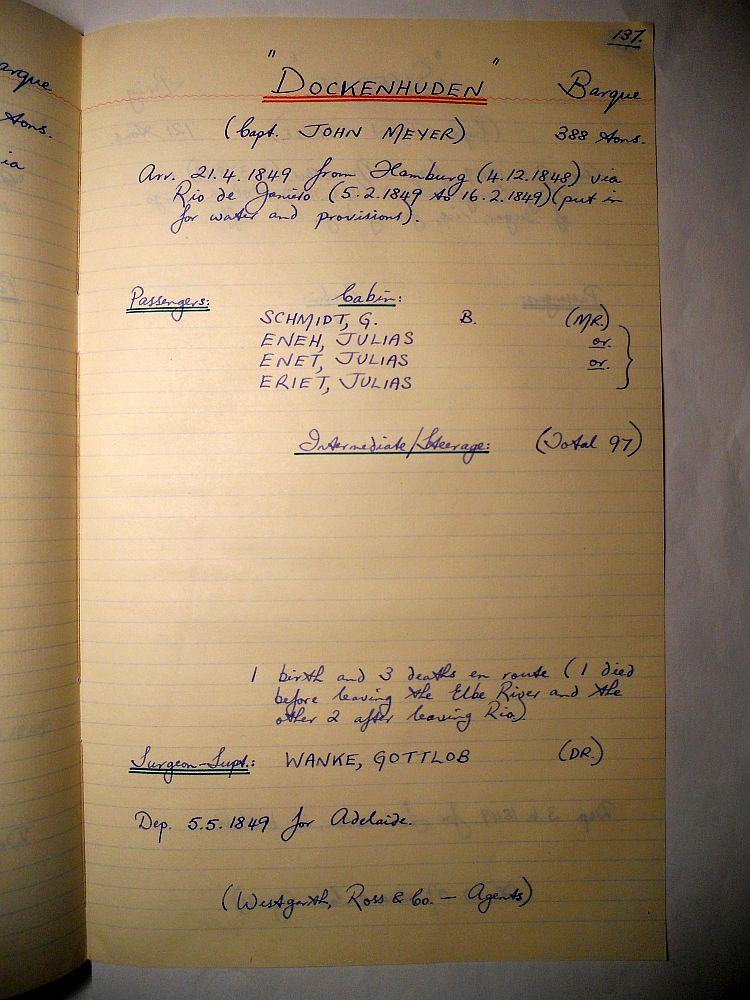 137.
"DOCKENHUDEN" Barque
(Capt. JOHN MEYER) 388 tons.
Arr. 21.4.1849 from Hamburg (4.12.1848) via
Rio de Janiero (5.2.1849 to 16.2.1849) (put in
for water and provisions).
Passengers: Cabin:
SCHMIDT, G. B. (MR.)
ENEH, JULIAS or.
ENET, JULIAS or.
ERIET, JULIAS
Intermediate/Steerage: (Total 97)
1 birth and 3 deaths en route (1 died
before leaving the Elbe River and the
other 2 after leaving Rio).
Surgeon-Supt.: WANKE, GOTTLOB (DR.)
Dep. 5.5.1849 for Adelaide.
(Westgarth, Ross & Co. - Agents)
arque
tons.
ia